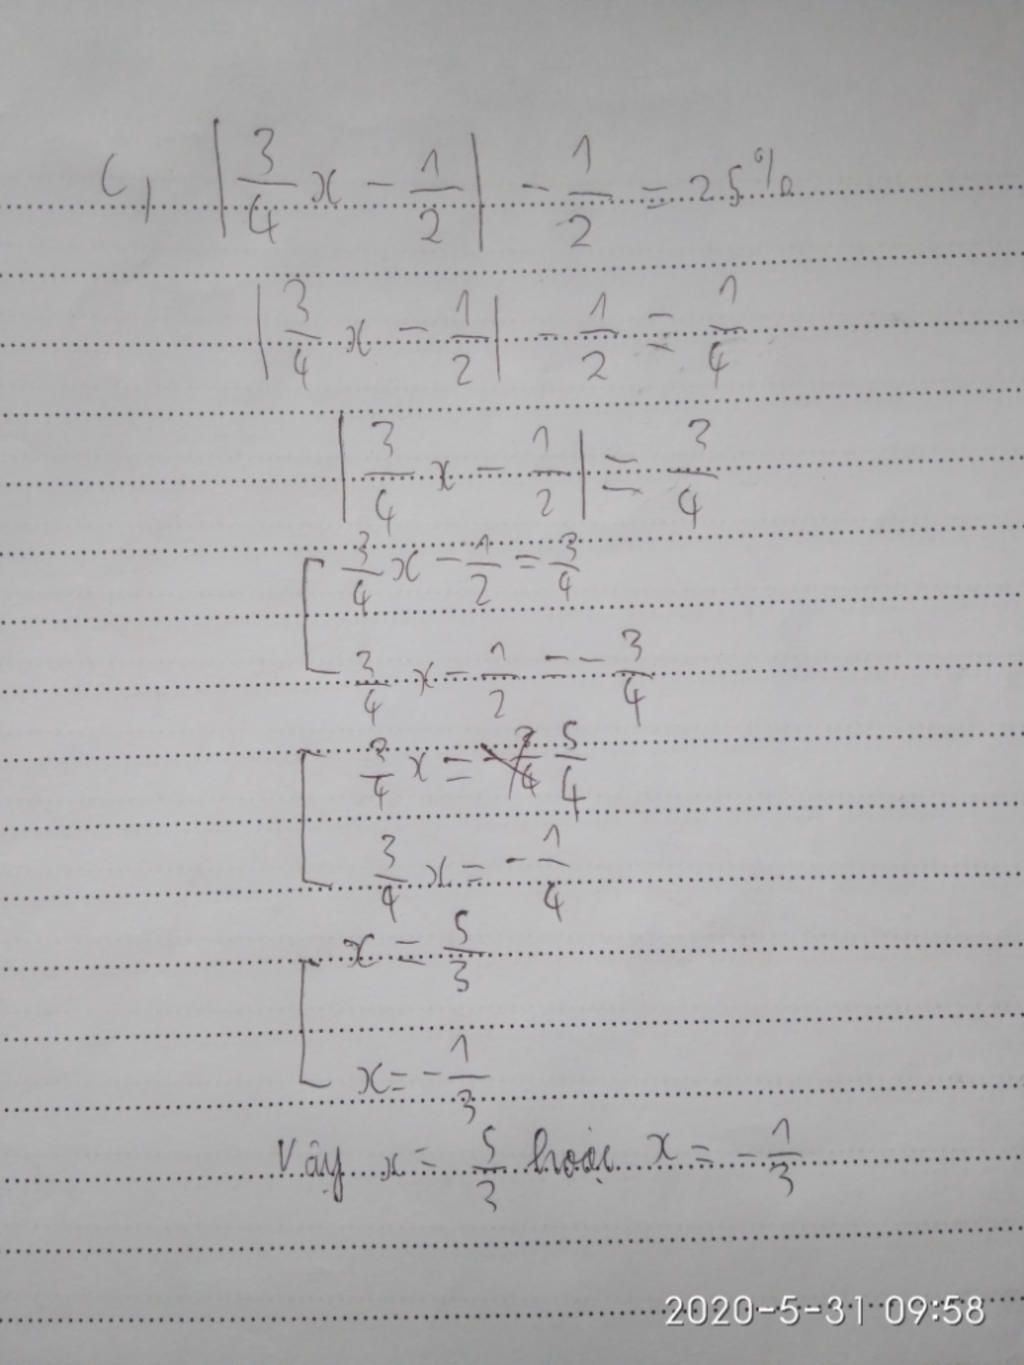 c, |3/4 x - 1/2| - 1/2 = 25%
|3/4 x - 1/2| - 1/2 = 1/4
|3/4 x - 1/2| = 3/4
[ 3/4 x - 1/2 = 3/4
3/4 x - 1/2 = - 3/4
[ 3/4 x = 5/4
3/4 x = - 1/4
[ x = 5/3
x = - 1/3
Vậy x = 5/3 hoặc x = - 1/3
2020-5-31 09:58